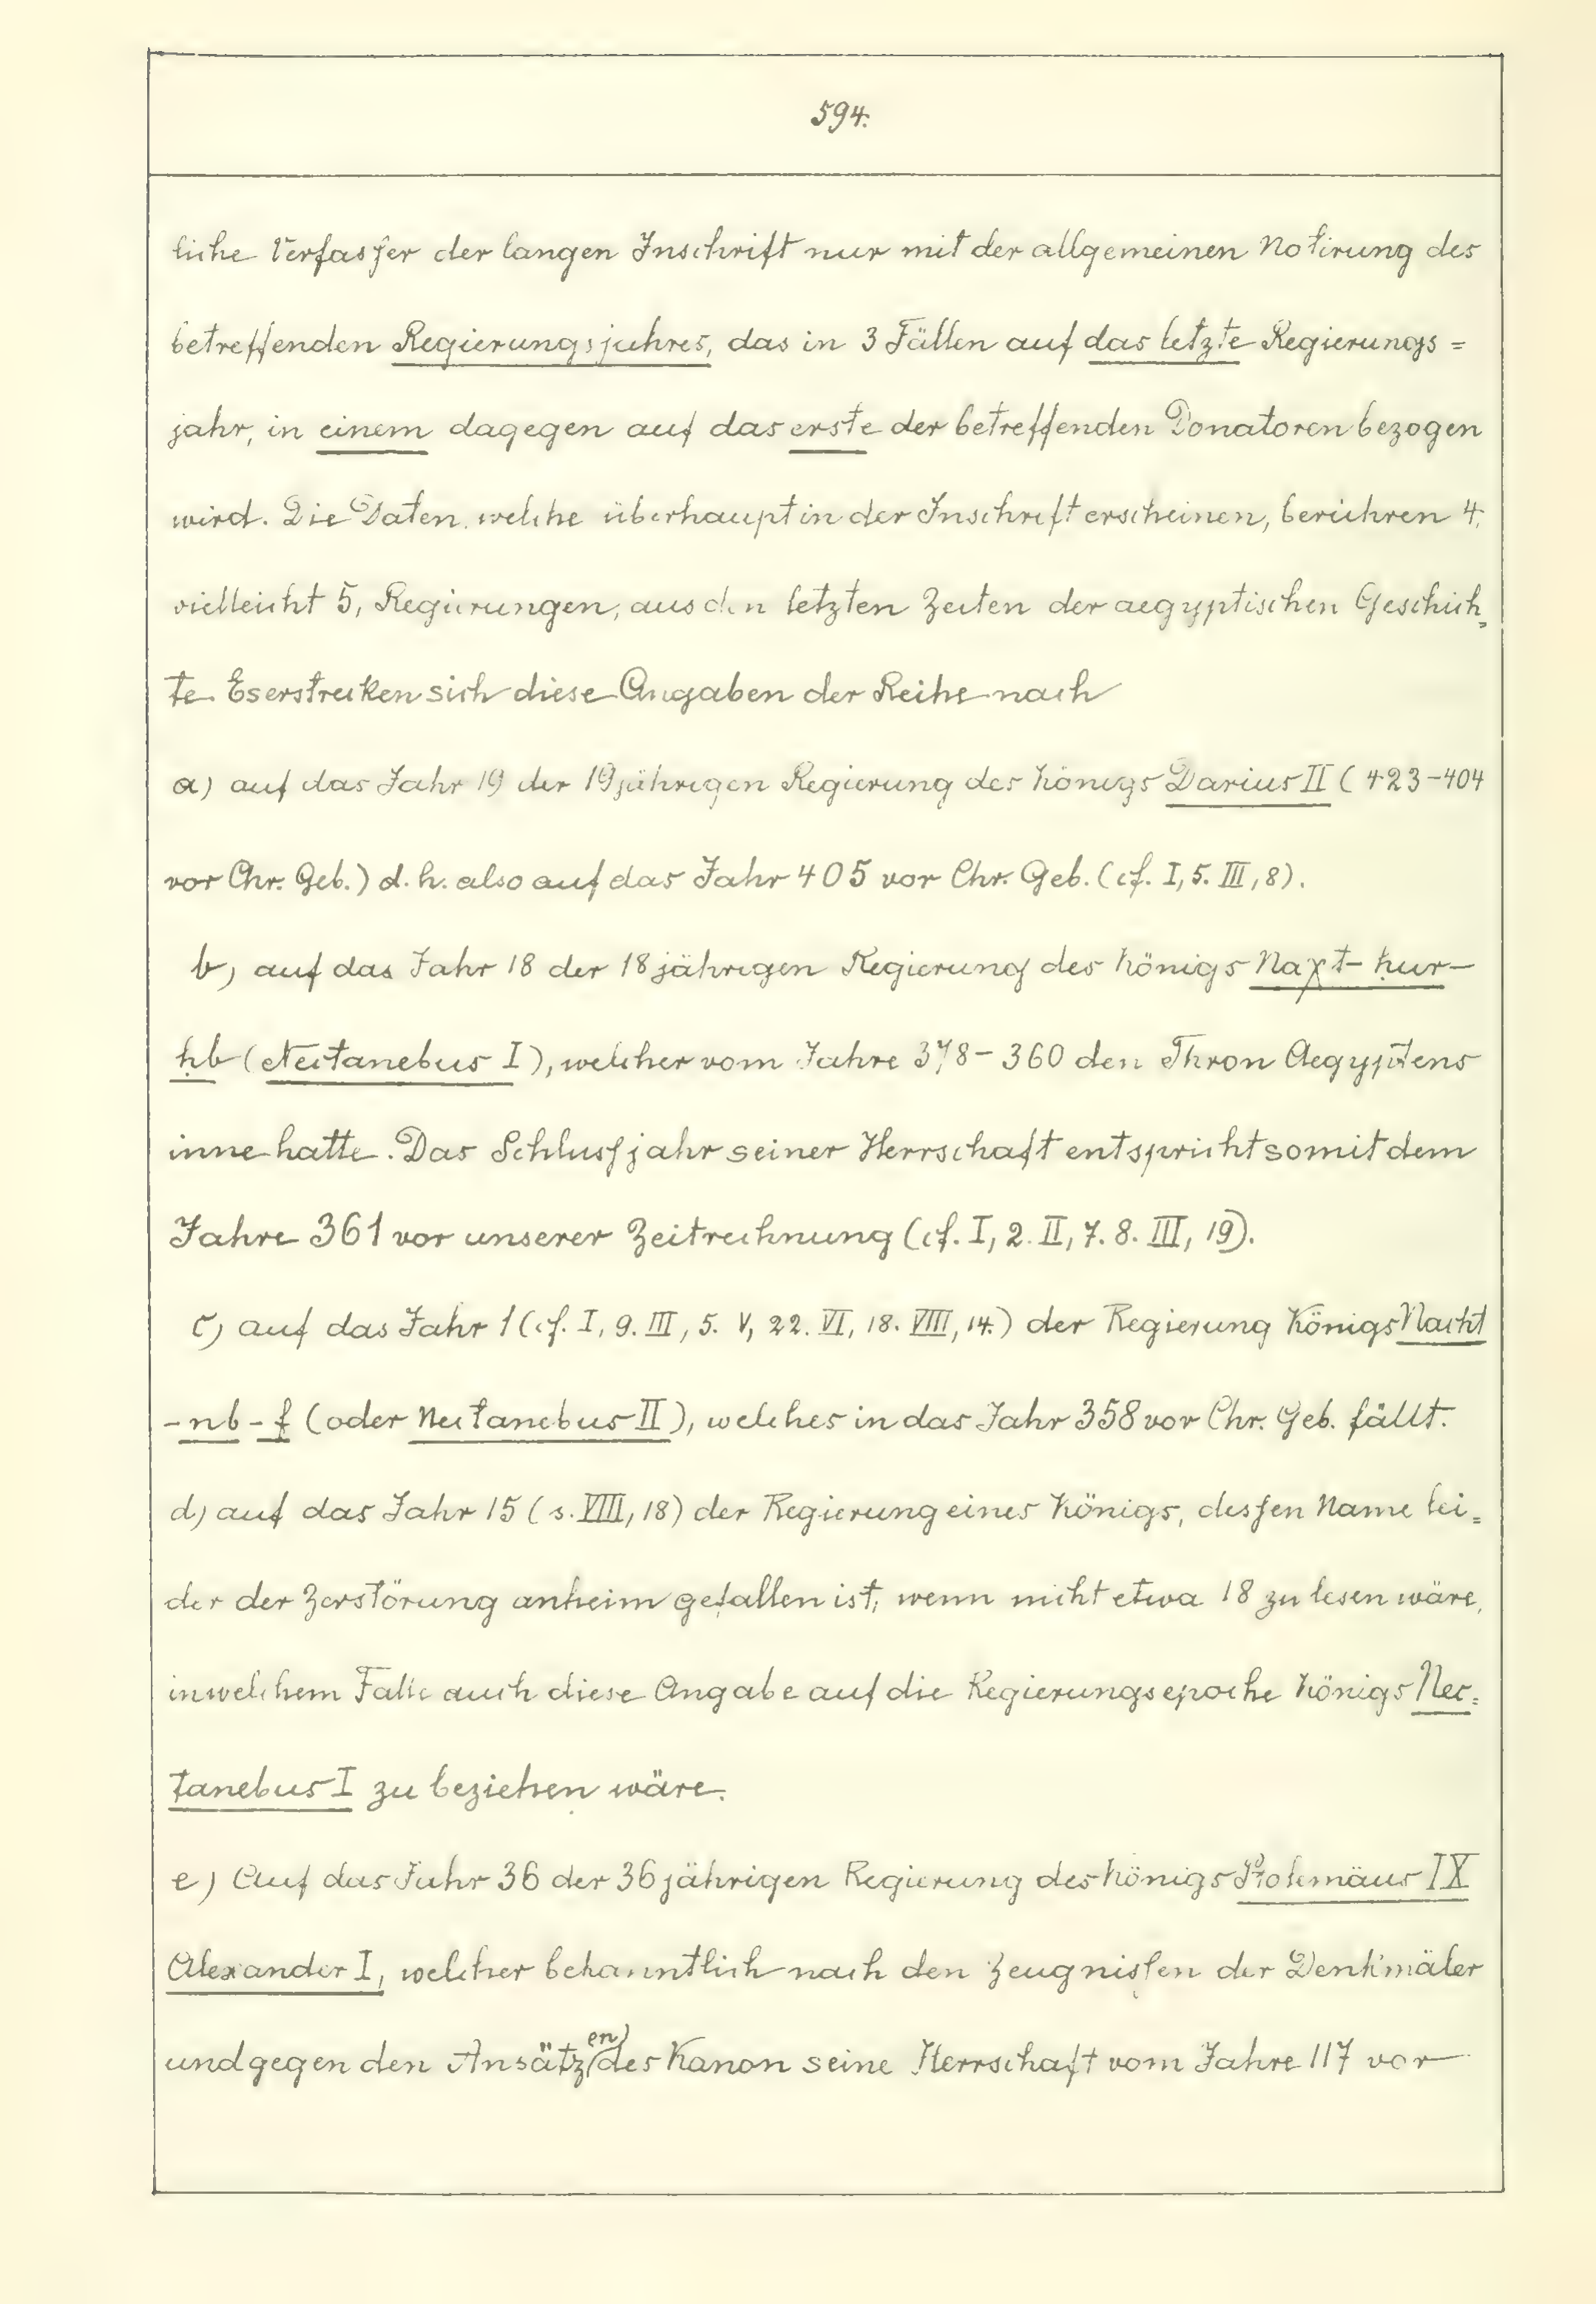 594.
liche Verfasser der langen Inschrift nur mit der allgemeinen Notirung des
betreffenden Regierungsjahres, das in 3 Fällen auf das letzte Regierungs=
jahr, in einem dagegen auf das erste der betreffenden Donatoren bezogen
wird. Die Daten, welche überhaupt in der Inschrift erscheinen, berühren 4,
vielleicht 5, Regierungen, aus den letzten Zeiten der aegyptischen Geschich=
te. Es erstrecken sich diese Angaben der Reihe nach
a) auf das Jahr 19 der 19jährigen Regierung des Königs Darius II (423-404
vor Chr. Geb.) d. h. also auf das Jahr 405 vor Chr. Geb. (cf. I, 5. III, 8).
b) auf das Jahr 18 der 18jährigen Regierung des Königs Naχt-ḥur-
ḥb (Nectanebus I), welcher vom Jahre 378-360 den Thron Aegyptens
inne hatte. Das Schlussjahr seiner Herrschaft entspricht somit dem
Jahre 361 vor unserer Zeitrechnung (cf. I, 2. II, 7. 8. III, 19).
c) auf das Jahr 1 (cf. I, 9. III, 5. V, 22. VI, 18. VIII, 14.) der Regierung Königs Nacht
-nb-f (oder Nectanebus II), welches in das Jahr 358 vor Chr. Geb. fällt.
d) auf das Jahr 15 (s. VIII, 18) der Regierung eines Königs, dessen Name lei=
der der Zerstörung anheim gefallen ist, wenn nicht etwa 18 zu lesen wäre,
in welchem Falle auch diese Angabe auf die Regierungsepoche Königs Nec=
tanebus I zu beziehen wäre.
e) Auf das Jahr 36 der 36jährigen Regierung des Königs Ptolemäus IX
Alexander I, welcher bekanntlich nach den Zeugnissen der Denkmäler
und gegen den Ansätzen des Kanon seine Herrschaft vom Jahre 117 vor